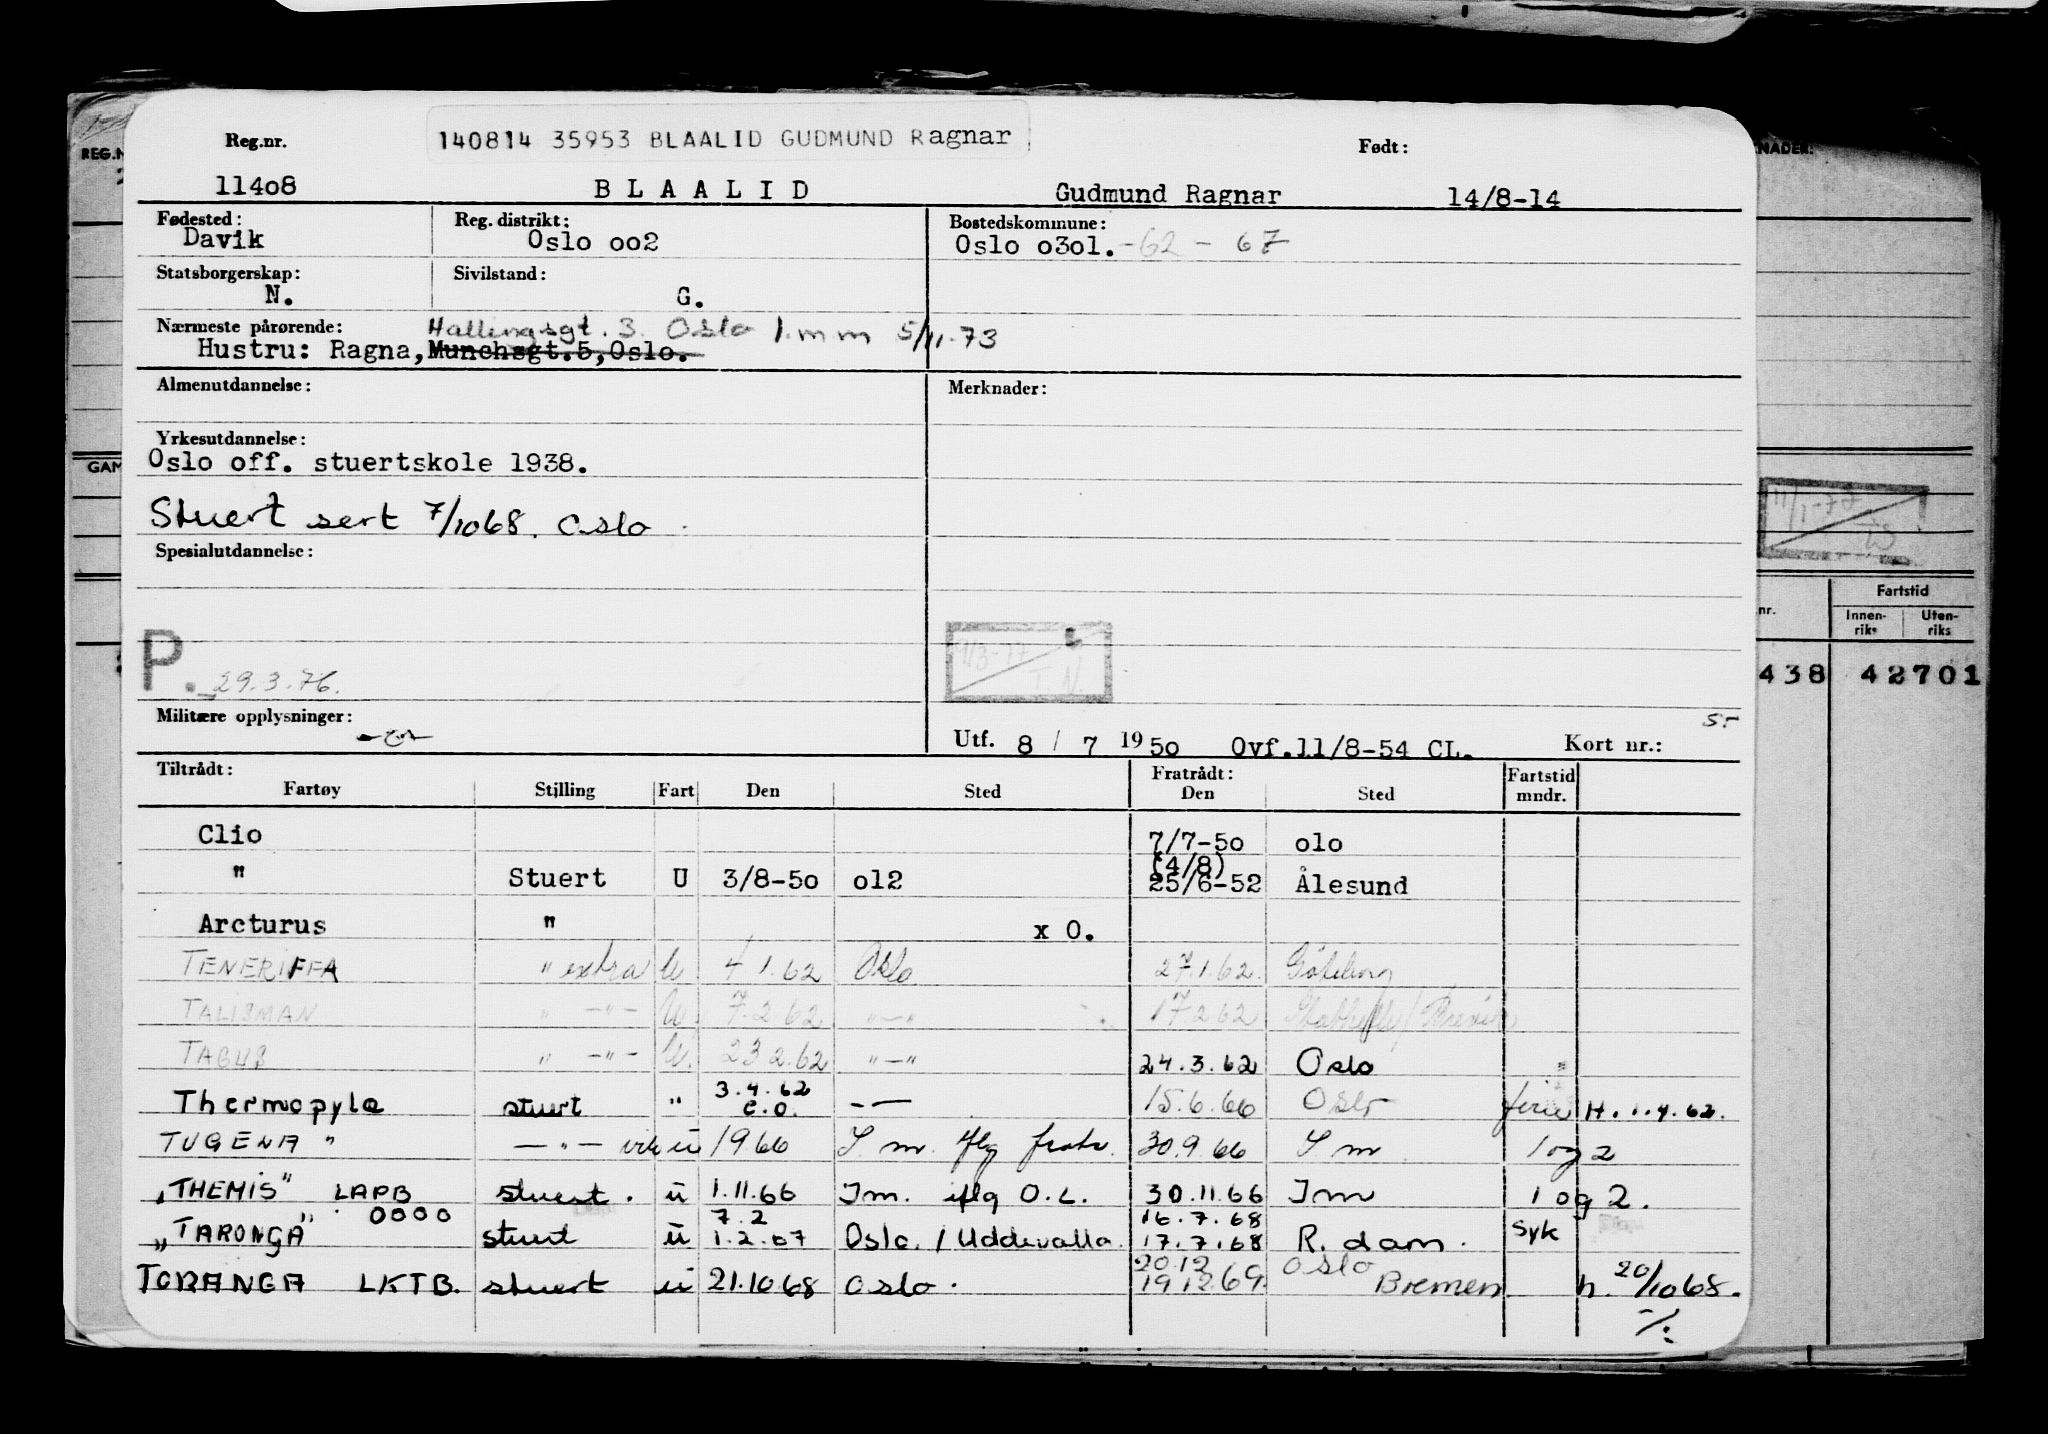 140814 35953 BLAALID GUDMUND Ragnar
Reg.nr. Født:
11408 BLAALID Gudmund Ragnar 14/8-14
Fødested: Reg. distrikt: Bostedskommune:
Davik Oslo oo2 Oslo o3ol. -62 - 67
Statsborgerskap: Sivilstand:
N. G.
Nærmeste pårørende: Hallingsgt. 3. Oslo 1.mm 5/11.73
Hustru: Ragna, Munchsgt.5, Oslo.
Almenutdannelse: Merknader:
Yrkesutdannelse:
Oslo off. stuertskole 1938.
Stuert sert 7/1068. Oslo
Spesialutdannelse:
P. 29.3.76.
Militære opplysninger:
Utf. 8 / 7 1950 Ovf.11/8-54 CL. Kort nr.:
Tiltrådt: Fratrådt: Fartstid
Fartøy Stilling Fart Den Sted Den Sted mndr.
Clio 7/7-50 olo
" Stuert U 3/8-50 ol2 (4/8) 25/6-52 Ålesund
Arcturus " x O.
TENERIFFA " extra U 4.1.62 Oslo 27.1.62.
TALISMAN " -"- U 7.2.62 "-" 17.2.62
TAGUS " -"- U. 23.2.62 "-" 24.3.62 Oslo "
Thermopylæ stuert " 3.4.62 e.o. -- 15.6.66 Oslo ferie H. 1.4.62.
TUGELA " -"- vik ü 1966 I m. iflg fratr. 30.9.66 I m 1 og 2
"THEMIS" LAPB stuert. ü 1.11.66 Im. iflg O.L. 30.11.66 Im 1 og 2.
"TARONGA" OOOO stuert ü 7.2 1.2.67 Oslo. / Uddevalla. 16.7.68 17.7.68 R.dam. syk
TORANGA LKTB. stuert ü 21.10.68 Oslo. 20.12 19.12.69. Oslo Bremen h. 20/1068.
REG.N
NADER:
GAM
nr. Fartstid
Innen-riks Uten-riks
438 42701